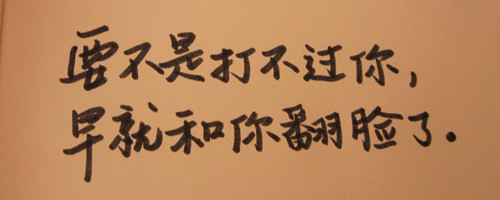 要不是打不过你，
早就和你翻脸了.